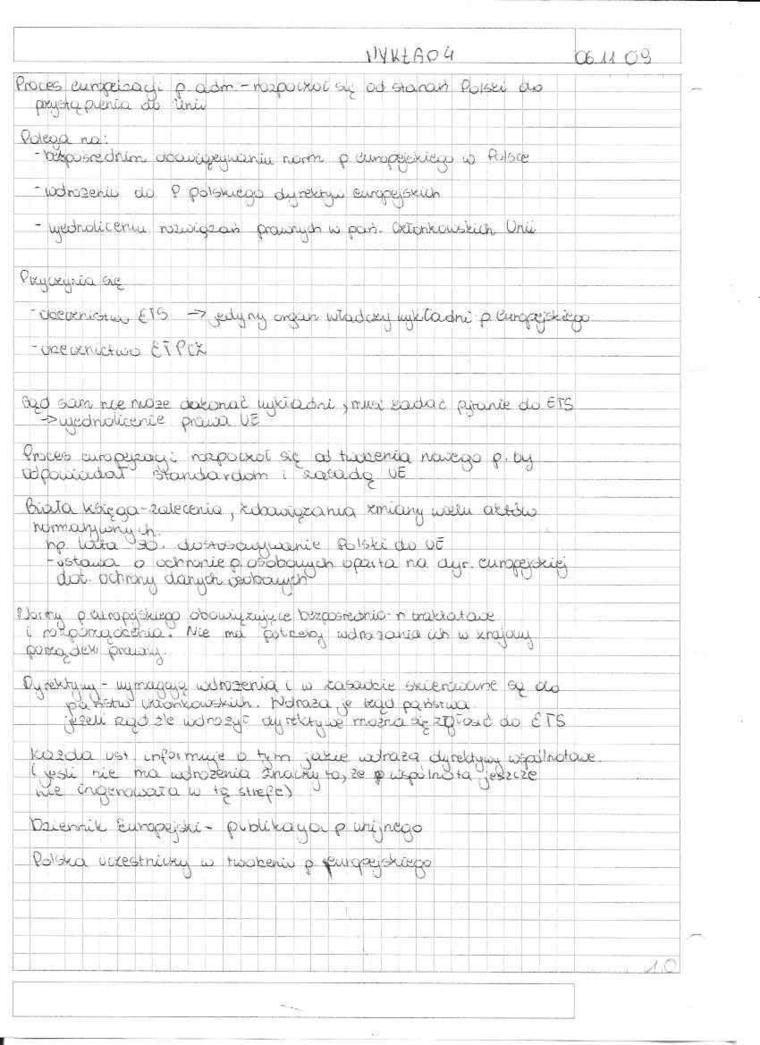 WYKŁAD 4 06.11.09
Proces europeizacji p. adm. - rozpoczął się od starań Polski do
przystąpienia do Unii
Polega na:
- bezpośrednim obowiązywaniu norm p. europejskiego w Polsce
- wdrożeniu do P polskiego dyrektyw europejskich
- ujednoliceniu rozwiązań prawnych w pań. członkowskich Unii
Przyczynia się
- orzecznictwo ETS → jedyny organ władczy wykładni p europejskiego
- orzecznictwo ETPCZ
Sąd sam nie może dokonać wykładni, musi zadać pytanie do ETS
→ ujednolicenie prawa UE
Proces europeizacji rozpoczął się od tworzenia nowego p. by
odpowiadał standardom i zasadą UE
Biała księga - zalecenia, zobowiązania zmiany wielu aktów
normatywnych.
np. lata 90. dostosowywanie Polski do UE
- ustawa o ochronie p. osobowych oparta na dyr. europejskiej
dot. ochrony danych osobowych
Normy p europejskiego obowiązujące bezpośrednio - n traktatowe
i rozporządzenia. Nie ma potrzeby wdrażania ich w krajowy
porządek prawny.
Dyrektywy - wymagają wdrożenia i w zasadzie skierowane są do
państw członkowskich. Wdraża je rząd państwa.
jeżeli rząd źle wdrożył dyrektywę można się zgłosić do ETS
Każda ust. informuje o tym jakie wdraża dyrektywy wspólnotowe.
(jeśli nie ma wdrożenia znaczy to, że wspólnota jeszcze
nie ingerowała w tą strefę)
Dziennik Europejski - publikacja p unijnego
Polska uczestniczy w tworzeniu p europejskiego
10